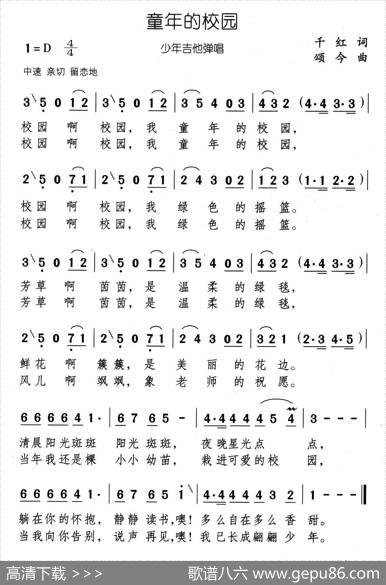 童年的校园
1=D 4/4 少年吉他弹唱 千红 词
中速 亲切 留恋地 颂今 曲
3 5 0 1 2 | 3 5 0 1 2 | 3 5 4 0 3 | 4 3 2 (4·4 3·3) |
校园 啊 校园，我 童 年 的 校 园，
校园 啊 校园，我 童 年 的 校 园，
2 5 0 7 1 | 2 5 0 7 1 | 2 4 3 0 2 | 1 2 3 (1·1 2·2) |
校园 啊 校园，我 绿 色 的 摇 篮。
校园 啊 校园，我 绿 色 的 摇 篮。
3 5 0 1 2 | 3 5 0 1 2 | 3 5 4 0 3 | 4 3 2 (4·4 3·3) |
芳草 啊 茵茵，是 温 柔 的 绿 毯，
芳草 啊 茵茵，是 温 柔 的 绿 毯，
2 5 0 7 1 | 2 5 0 7 1 | 2 4 3 0 2 | 3 2 1 (2·3 4·5) |
鲜花 啊 簇簇，是 美 丽 的 花 边。
风儿 啊 飒飒，象 老 师 的 祝 愿。
6 6 6 6 4 1· | 6 7 6 5 - | 4·4 4 4 4 5 4 | 3 - - - |
清晨阳光斑斑 阳光 斑斑， 夜 晚星光点 点，
当年我还是棵 小小 幼苗， 栽 进可爱的校 园，
6 6 6 6 4 1· | 6 7 6 5 i | 4·4 4 4 3 2 | 1 - - - |
躺在你的怀抱， 静静 读书，噢！多么自在多么香 甜。
当我向你告别， 说声 再见，噢！我已长成翩翩少 年。
高清下载 >>> 歌谱八六 www.gepu86.com